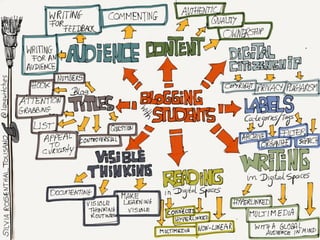 WRITING FOR
FEEDBACK
COMMENTING
AUTHENTIC
QUALITY
OWNERSHIP
WRITING
FOR AN
AUDIENCE
AUDIENCE
CONTENT
DIGITAL
CITIZENSHIP
COPYRIGHT
PRIVACY
PLAGIARISM
HOOK
NUMBERS
Blog
TITLES
ATTENTION
GRABBING
LIST
QUESTION
APPEAL
TO
CURIOSITY
CONTROVERSIAL
BLOGGING
WITH
STUDENTS
LABELS
Categories/Tags
ARCHIVE
ORGANIZE
FILTER
VISIBLE
THINKING
DOCUMENTING
VISIBLE
THINKING
ROUTINES
MAKE
LEARNING
VISIBLE
READING
in Digital Spaces
CONNECTED
HYPERLINKED
MULTIMEDIA
NON-LINEAR
WRITING
in Digital Spaces
HYPERLINKED
MULTIMEDIA
WITH A GLOBAL
AUDIENCE IN MIND
SYLVIA ROSENTHAL TOLISANO
@langwitches